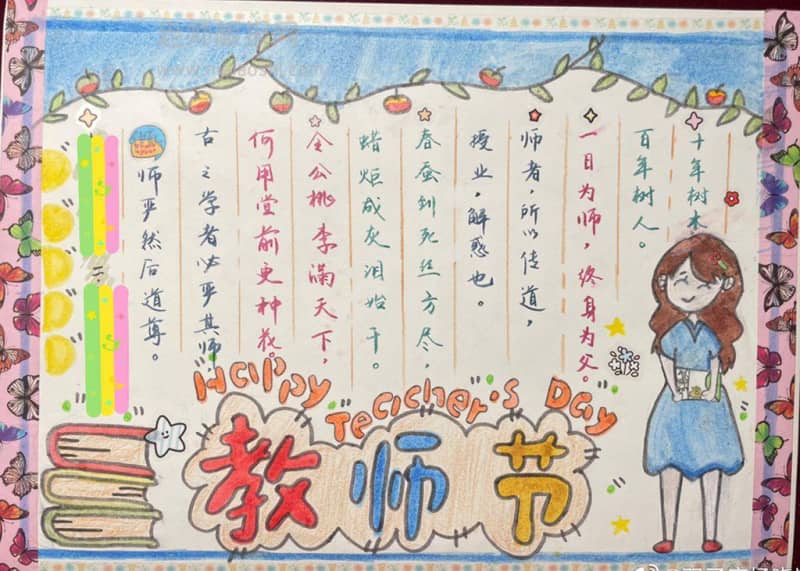 十年树木,
百年树人。
一日为师,终身为父。
师者,所以传道,
授业,解惑也。
春蚕到死丝方尽,
蜡炬成灰泪始干。
令公桃李满天下,
何用堂前更种花。
古之学者必严其师,
师严然后道尊。
Happy Teacher's Day
教师节